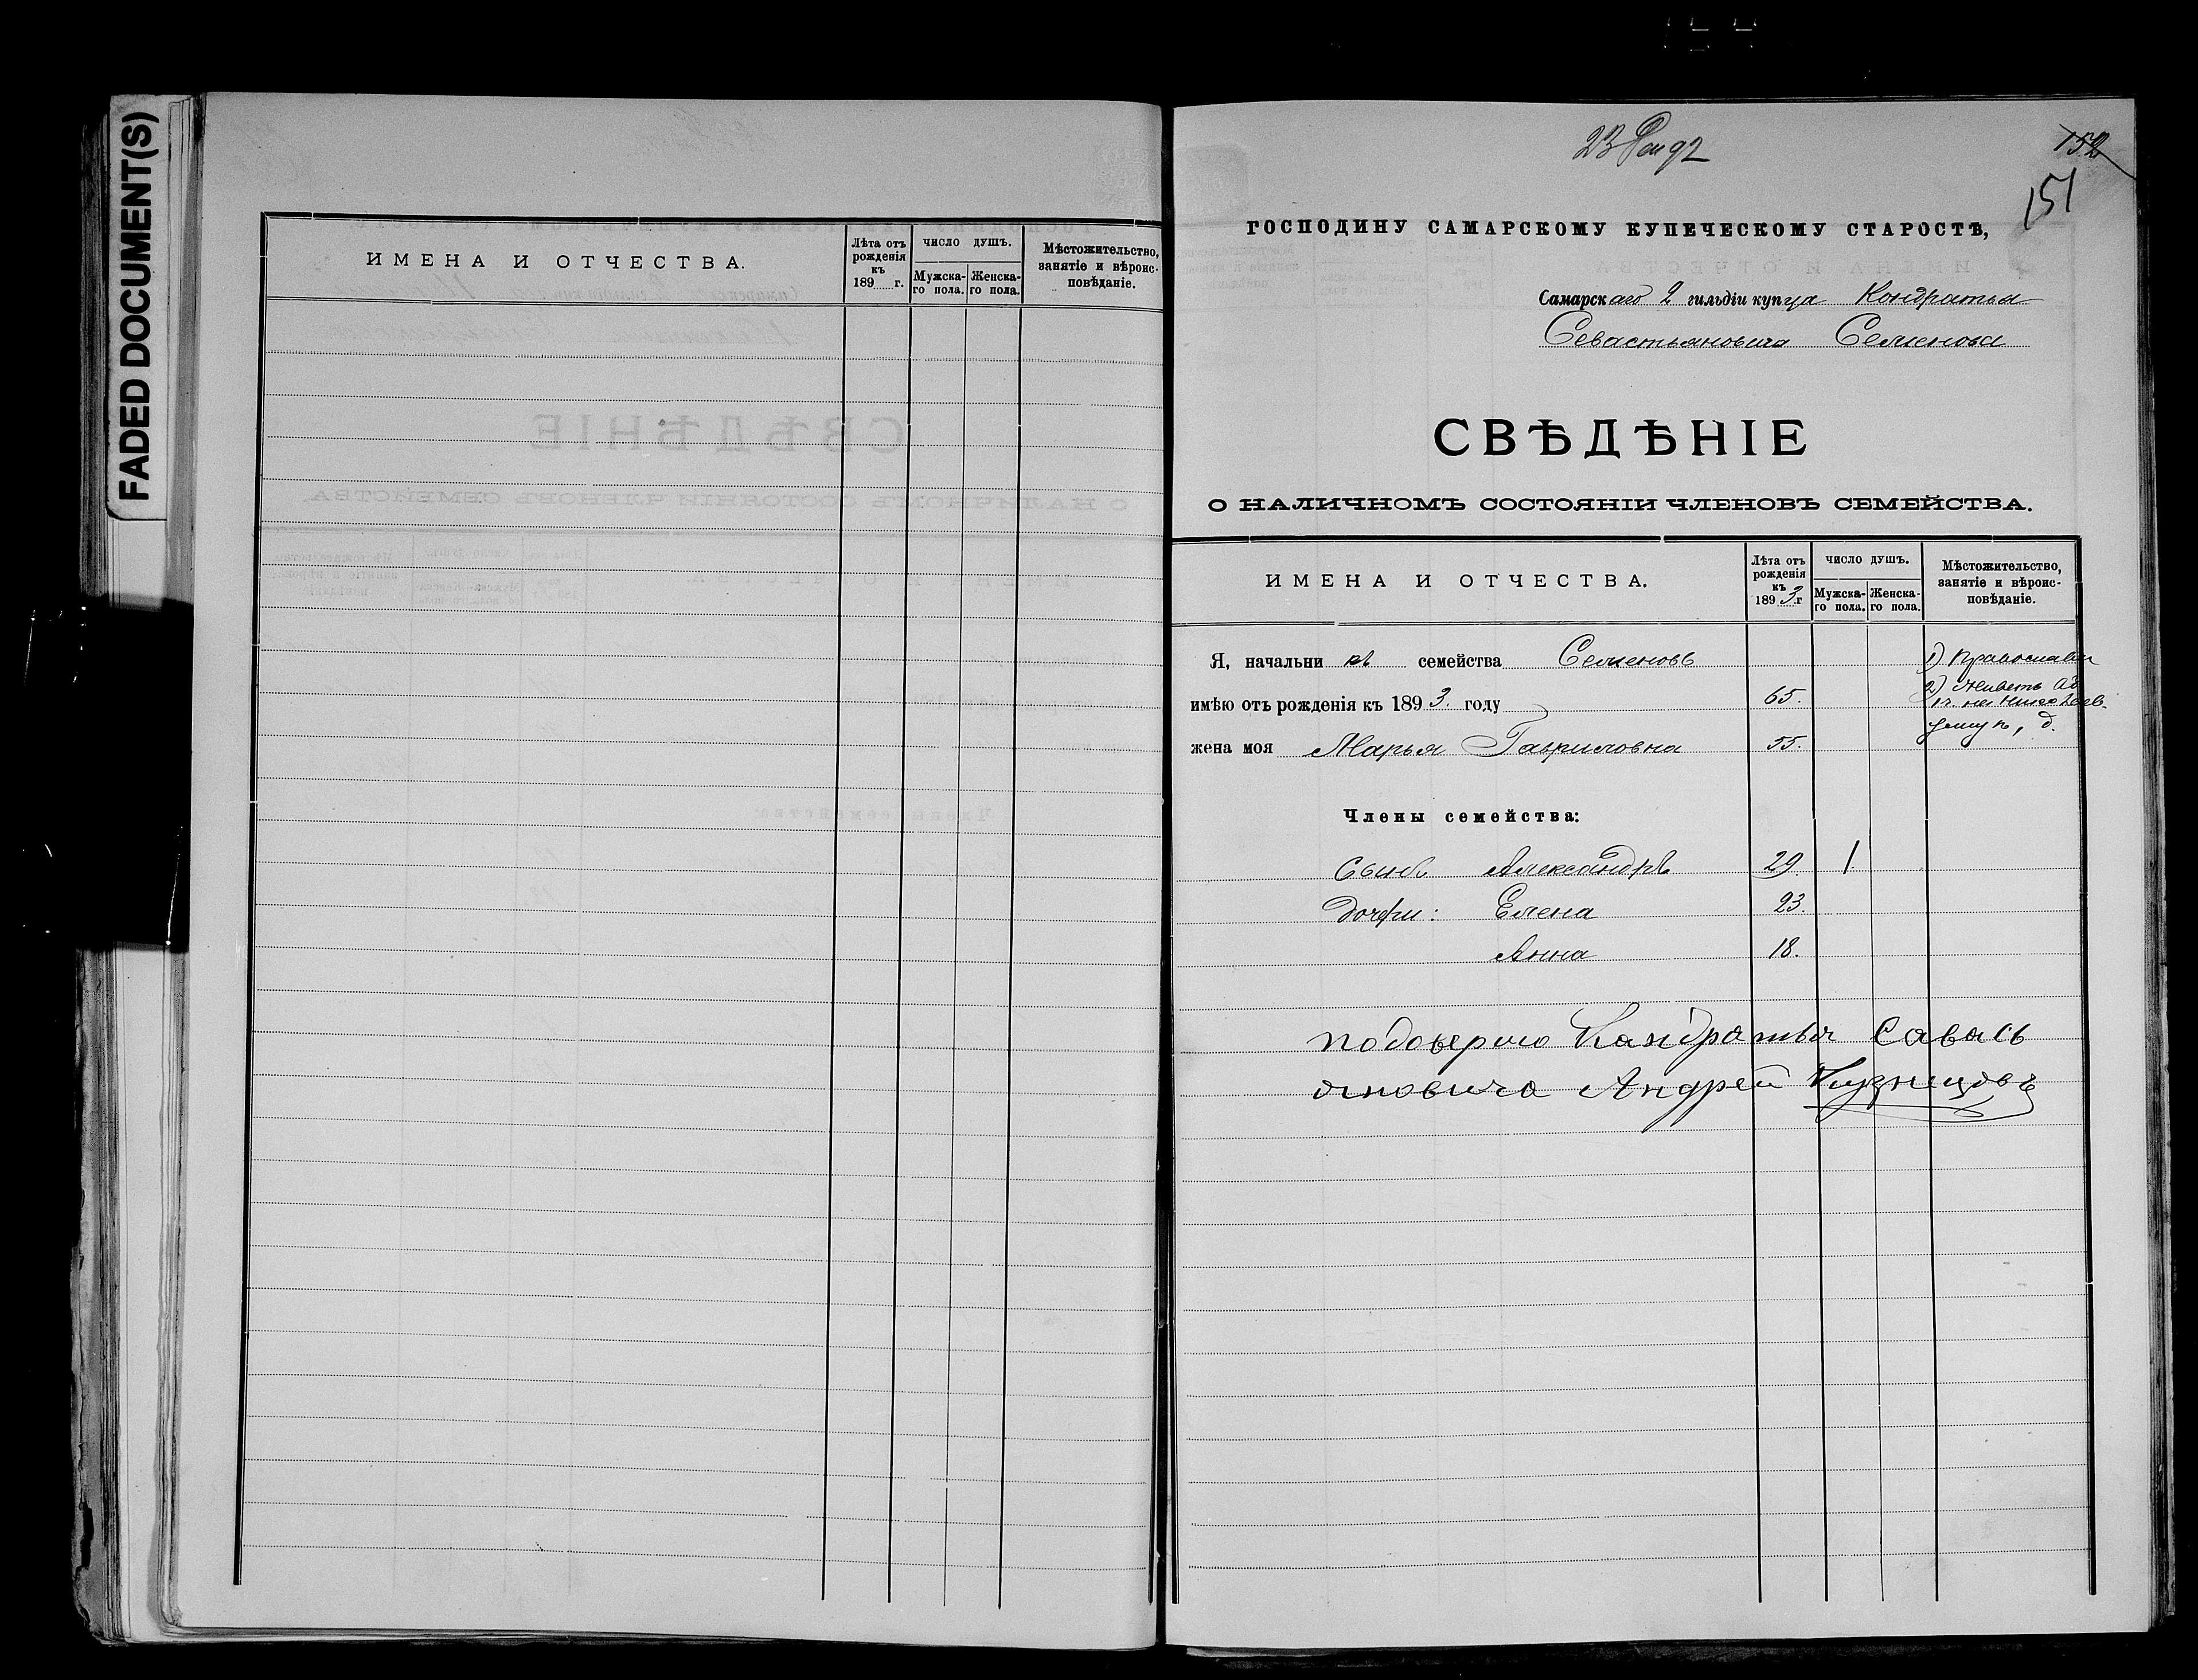 FADED DOCUMENT(S)
ИМЕНА И ОТЧЕСТВА.
Лѣта отъ рожденія къ 189 г.
ЧИСЛО ДУШЪ.
Мужска-го пола.
Женска-го пола.
Мѣстожительство, занятіе и вѣроис-повѣданіе.
152
151
ГОСПОДИНУ САМАРСКОМУ КУПЕЧЕСКОМУ СТАРОСТѢ,
Самарскаго 2 гильдіи купца Кондратья
Севастьяновича Семенова
СВѢДѢНІЕ
О НАЛИЧНОМЪ СОСТОЯНІИ ЧЛЕНОВЪ СЕМЕЙСТВА.
ИМЕНА И ОТЧЕСТВА.
Лѣта отъ рожденія къ 1893 г
ЧИСЛО ДУШЪ.
Мужска-го пола.
Женска-го пола.
Мѣстожительство, занятіе и вѣроис-повѣданіе.
Я, начальникъ семейства Семеновъ 1)
имѣю отъ рожденія къ 1893. году 65. 2) Живетъ
жена моя Марья Гавриловна 55.
Члены семейства:
Сынъ Александръ 29. 1.
Дочери: Елена 23.
Анна 18.
подоверию Кандратья Савась
яновича Андрей Кузнецовъ